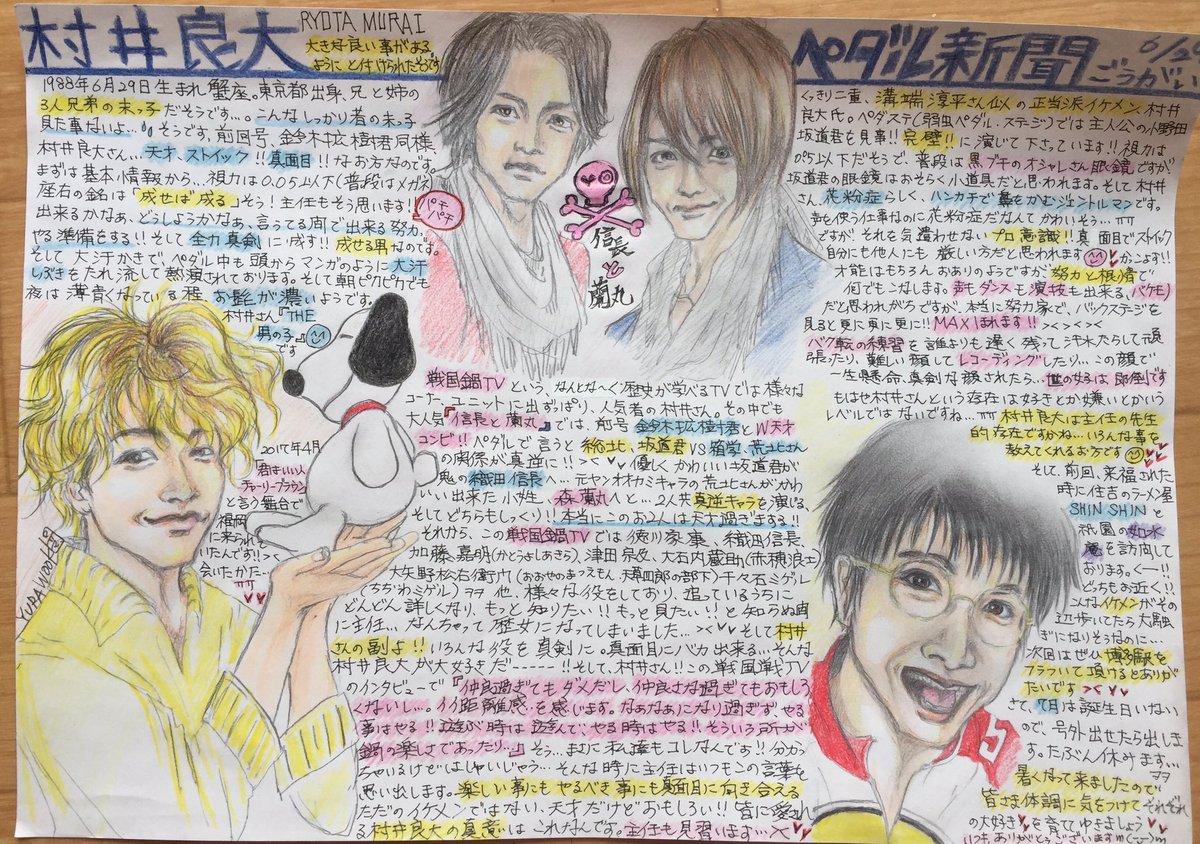 村井良大
RYOTA MURAI
大きな良い事がある
ように と付けられたそうです
1988年6月29日生まれ 蟹座。東京都出身、兄と姉の
3人兄弟の末っ子だそうです…。こんなしっかり者の末っ子
見た事ないよ…そうです、前回号、鈴木拡樹君同様
村井良大さん…天才、ストイック!!真面目!!なお方なのです。
まずは基本情報から…視力は0.05以下(普段はメガネ)
座右の銘は「成せば成る」そう!主任もそう思います!
パチパチ
出来るかなぁ、どうしようかなぁ、言ってる間で出来る努力、
やる準備をする!!そして全力真剣に成す!!成せる男なのです。
そして大汗かきで、ペダル中も頭からマンガのように大汗
しぶきをたれ流して熱演されております。そして朝ピカピカでも
夜は薄青くなっている程、お髭が濃いようです。
村井さん『THE
男の子』
です
信長
と
蘭丸
ペダル新聞
ごうがい
くっきり二重、溝端淳平さん似の正当派イケメン村井
良大氏。ペダステ(弱虫ペダル、ステージ)では主人公の小野田
坂道君を見事!!完璧!!に演じて下さっています!!視力は
0.05以下だそうで、普段は黒ブチのオシャレさん眼鏡ですが
坂道君の眼鏡はおそらく小道具だと思われます。そして村井
さん、花粉症らしく、ハンカチで鼻をかむジェントルマンです。
声を使う仕事なのに花粉症だなんてかわいそう…
ですが、それを気遣わせないプロ意識!!真面目でストイック
自分にも他人にも厳しい方だと思われます かっこよす!!
才能はもちろんおありのようですが、努力と根性で
何でもこなします。声もダンスも演技も出来る、バケモノ
だと思われがちですが、本当に努力家で、バックステージを
見ると更に更に更に!!MAXほれます!!
バク転の練習を誰よりも遅く残って汗水たらして頑
張ったり、難しい顔してレコーディングしたり…この顔で
一生懸命、真剣な顔されたら、世の女子は即倒です
もはや村井さんという存在は好きとか嫌いとかいう
レベルではないですね…
村井良大は主任の先生
的存在ですかね…いろんな事を
教えてくれるお方です
そして、前回、来福された
時に住吉のラーメン屋
SHIN SHINと
祇園の如水
庵を訪問して
おります。くー!!
どっちもお近く!!
こんなイケメンがその
辺歩いていたら大騒
ぎになりそうなのに…
次回はぜひ博多駅を
フラついて頂けるとありが
たいです
さて、7月は誕生日いない
ので、号外出せたら出しま
す。たぶん休みます…
暑くなって来ましたので
皆さま体調に気をつけてそれぞれ
の大好きを育てゆきましょう
いつもありがとうございますm(-_-)m
戦国鍋TVという、なんとな〜く歴史が学べるTVでは様々な
コーナー、ユニットに出ずっぱり、人気者の村井さん。その中でも
大人気『信長と蘭丸』では、前号鈴木拡樹君とW天才
コンビ!!ペダルで言うと総北、坂道君VS箱学、荒北さん
の関係が真逆に!!優しくかわいい坂道君が
鬼の織田信長へ…元ヤンオオカミキャラの荒北さんがかわ
いい出来た小姓、森蘭丸へと…2人共真逆キャラを演じる、
そしてどちらもしっくり!!本当にこのお2人は天才過ぎまする!!
それから、この戦国鍋TVでは徳川家康、織田信長、
加藤嘉明(かとうよしあきら)、津田宗及、大石内蔵助(赤穂浪士)
大矢野松右衛門(おおやのまつえもん、天草四郎の部下)千々石ミゲル
(ちぢわミゲル)ヲヲ他、様々な役をしており、追っているうちに
どんどん詳しくなり、もっと知りたい!!もっと見たい!!と知らぬ間
に主任…なんちゃって歴女になってしまいました… そして村井
さんの副よ!!いろんな役を真剣に。真面目にバカ出来る…そんな
村井良大が大好きだ-----!!そして、村井さん!!この戦国鍋TV
のインタビューで『仲良過ぎてもダメだし、仲良さな過ぎてもおもしろ
くないし…。イイ距離感を感じます。なあなあになり過ぎずやる
事はやる!!遊ぶ時は遊んで、やる時はやる!!そういう所が
鍋の楽しさであったり…』そう…まさに私達もコレなんです!!分かっ
ちゃいるけどはしゃいじゃう…そんな時に主任はいつもこの言葉を
思い出します。楽しい事にもやるべき事にも真面目に向き合える
ただのイケメンではない、天才だけどおもしろい!!皆に愛され
る村井良大の真意はこれなんです。主任も見習います…
2017年4月
「君はいい人
チャーリーブラウン」
と言う舞台で
福岡
に来られて
いたんです!!
会いたかた…